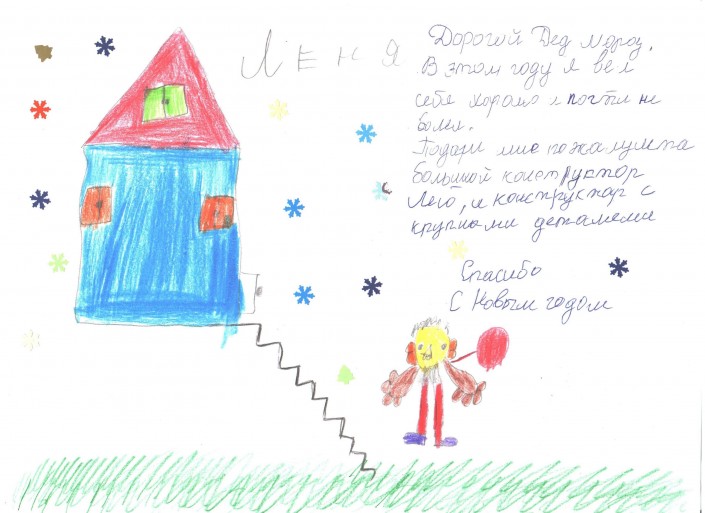 Леня
Дорогой Дед мороз.
В этом году я вел
себя хорошо и почти не
болел.
Подари мне пожалуйста
большой конструктор
Лего, и конструктор с
крупными деталеми
Спасибо
С Новым годом